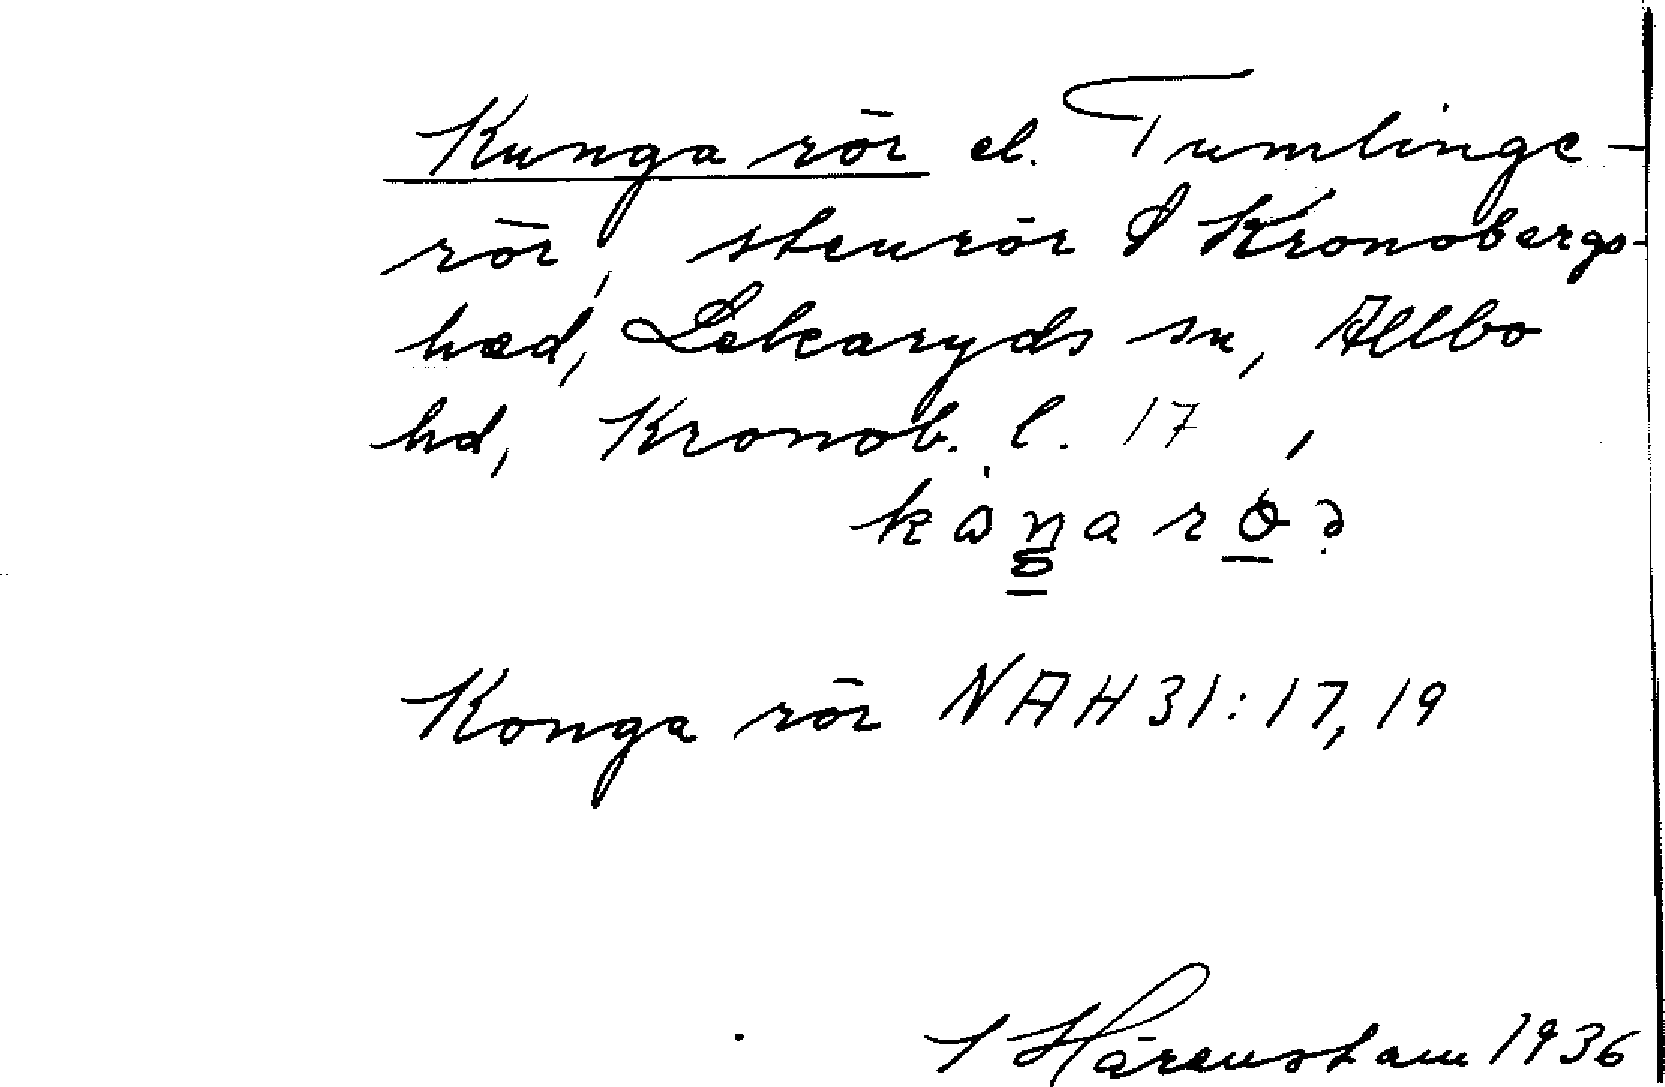 Kunga rör el. Tumlinge-
rör, stenrör i Kronobergs-
hed, Lekaryds sn, Allbo
hd, Kronob. l. 17,
Konga rör NAH 31:17, 19
1936